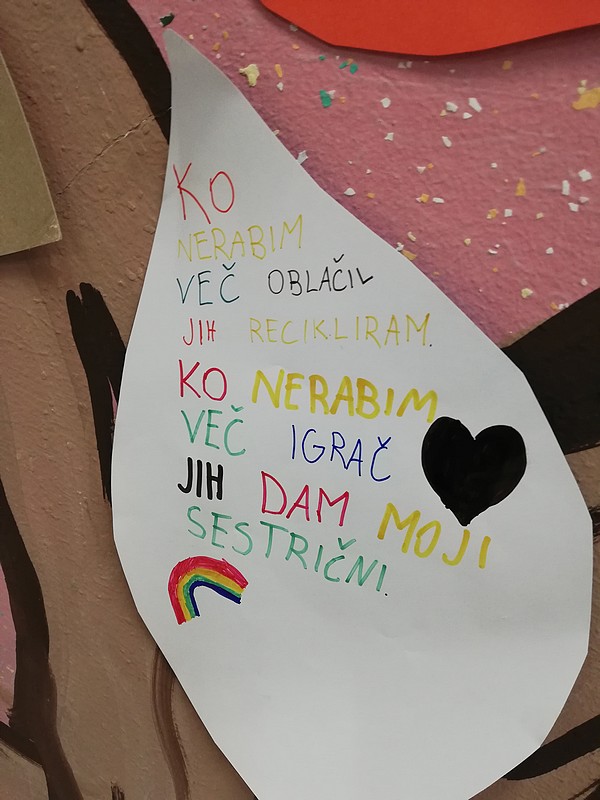 KO
NERABIM
VEČ OBLAČIL
JIH RECIKLIRAM.
KO NERABIM
VEČ IGRAČ
JIH DAM MOJI
SESTRIČNI.